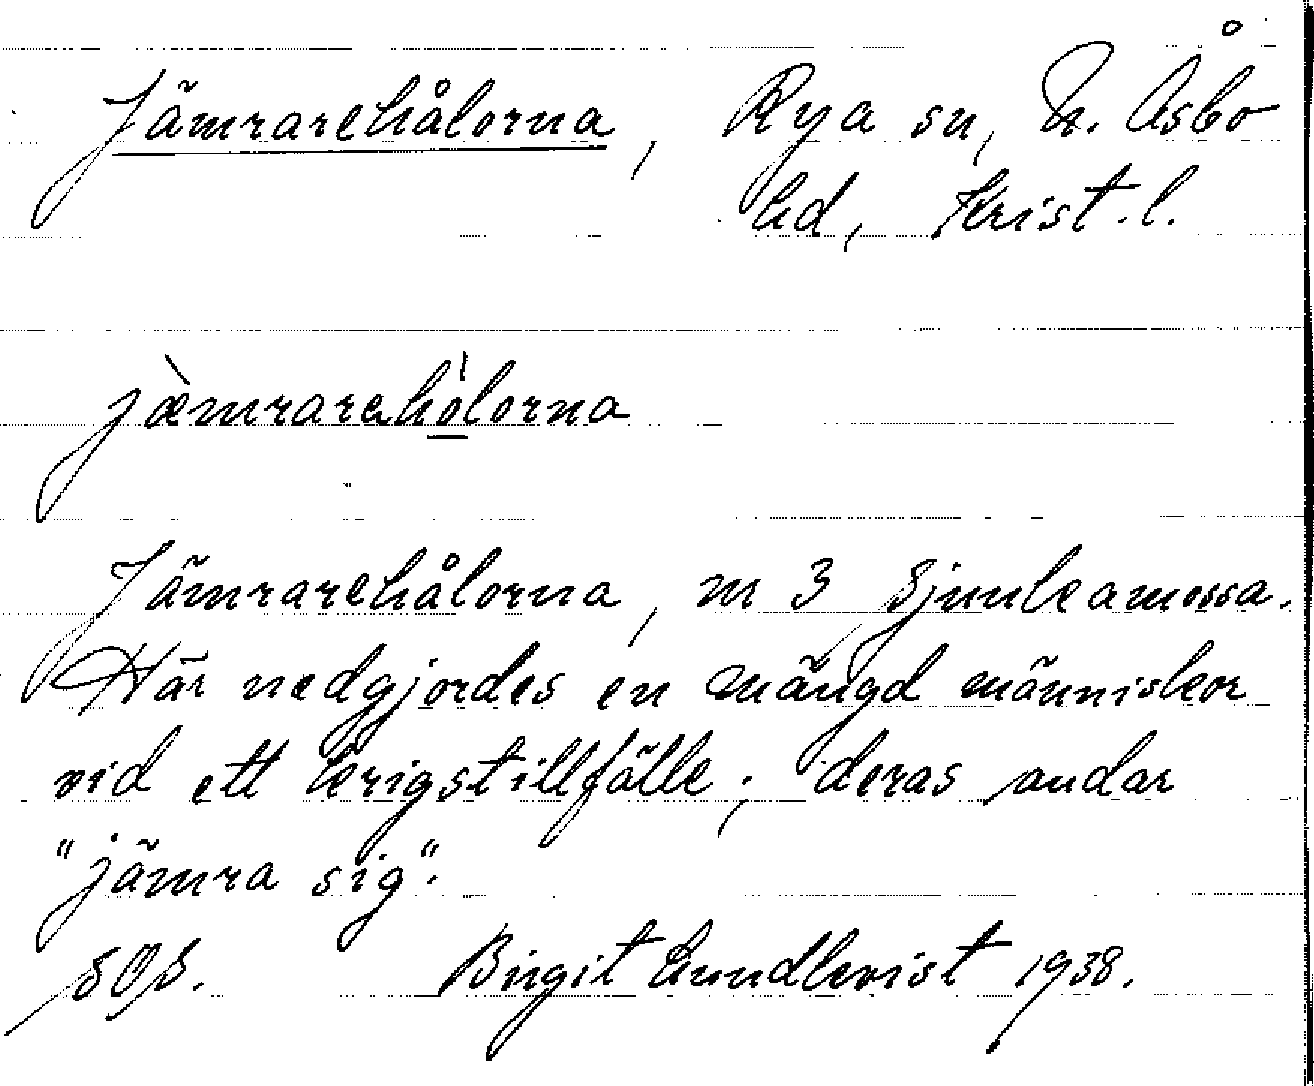 Jämrarehålorna, Rya sn, N. Åsbo
hd, Krist. l.
jæ̀mrarehòlorna
Jämrarehålorna, m 3 Sjunkamossa.
Här nedgjordes en mängd människor
vid ett krigstillfälle; deras andar
"jämra sig".
Birgit Lundkvist 1938.